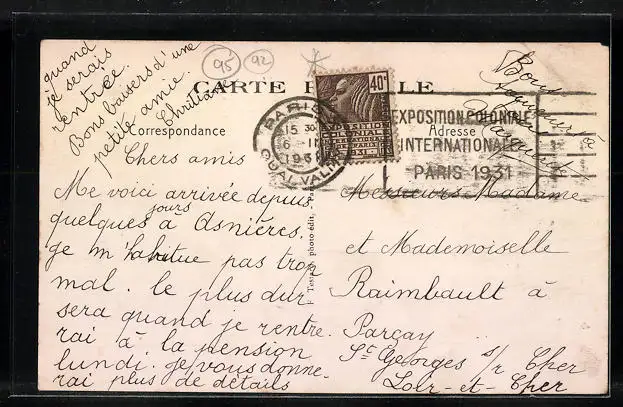 quand
je serais
rentrée.
Bons baisers d'une
petite amie.
Christiane
95
92
CARTE POSTALE
Correspondance
Adresse
40c
EXPOSITION
COLONIALE
INTERNATIONALE
PARIS 1931
PARIS
15 30
6 II
1931
QUAI VALMY
EXPOSITION COLONIALE
INTERNATIONALE
PARIS 1931
Bons
Chers amis
Me voici arrivée depuis
quelques jours à Asnières.
Je m'habitue pas trop
mal. le plus dur
sera quand je rentre-
rai à la pension
lundi. je vous donne-
rai plus de détails
photo édit.
Messieurs Madame
et Mademoiselle
Raimbault à
Parçay
St Georges s/r Cher
Loir-et-Cher